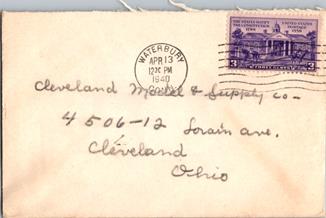 WATERBURY
APR 13
12 PM
1940
CONN.
THE STATES RATIFY
THE CONSTITUTION
1788
UNITED STATES
POSTAGE
1938
3
3
Cleveland Model & Supply Co-
4506-12 Lorain Ave.
Cleveland
Ohio